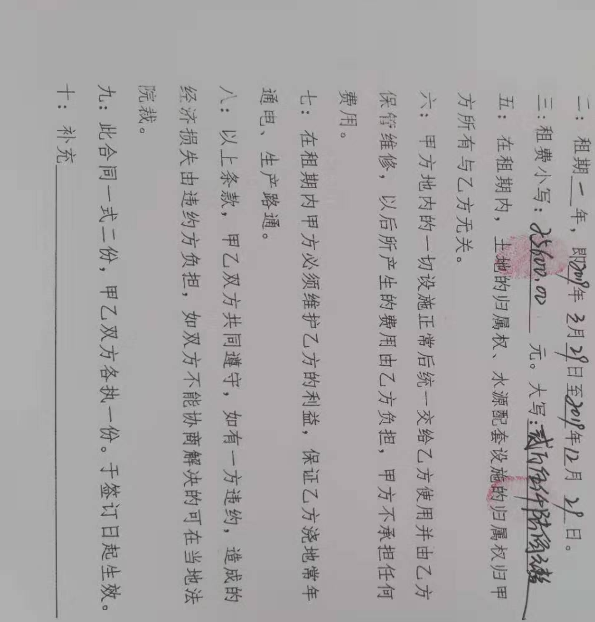 二：租期一年，即2019年3月29日至2019年12月29日。
三：租费小写：25600.00元。大写：贰万伍仟陆佰元整
五：在租期内，土地的归属权、水源配套设施的归属权归甲
方所有与乙方无关。
六：甲方地内的一切设施正常后统一交给乙方使用并由乙方
保管维修，以后所产生的费用由乙方负担，甲方不承担任何
费用。
七：在租期内甲方必须维护乙方的利益，保证乙方浇地常年
通电、生产路通。
八：以上条款，甲乙双方共同遵守，如有一方违约，造成的
经济损失由违约方负担，如双方不能协商解决的可在当地法
院裁。
九：此合同一式二份，甲乙双方各执一份。于签订日起生效。
十：补充